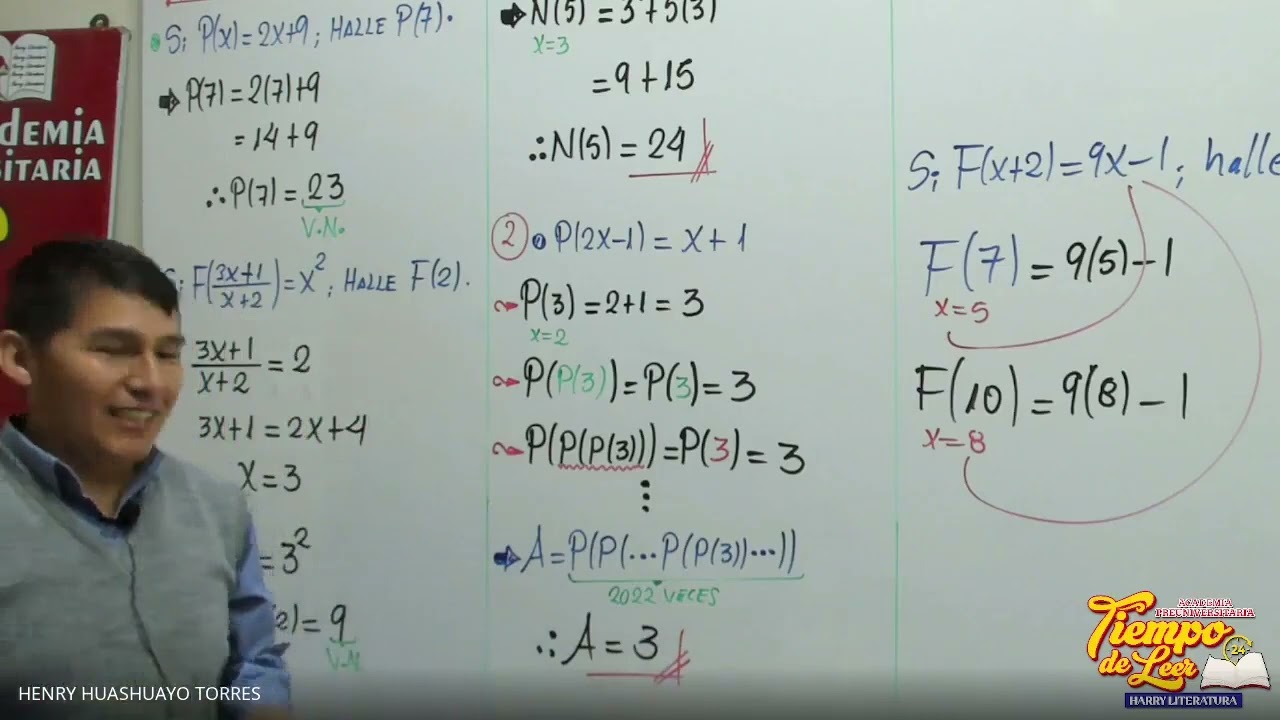 demia
sitaria
Si P(x)=2x+9; HALLE P(7).
P(7)=2(7)+9
=14+9
∴P(7)=23
V.N.
F(3x+1/x+2)=x²; HALLE F(2).
3x+1/x+2=2
3x+1=2x+4
x=3
=3²
2)=9
V.N
N(5)=3²+5(3)
x=3
=9+15
∴N(5)=24
2 • P(2x-1)=x+1
P(3)=2+1=3
x=2
P(P(3))=P(3)=3
P(P(P(3)))=P(3)=3
⋮
A=P(P(...P(P(3))...))
2022 VECES
∴A=3
Si F(x+2)=9x-1; halle
F(7)=9(5)-1
x=5
F(10)=9(8)-1
x=8
ACADEMIA
PREUNIVERSITARIA
Tiempo
de Leer
24
HARRY LITERATURA
HENRY HUASHUAYO TORRES